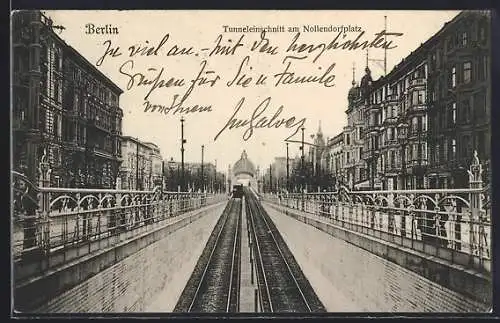 Berlin
Tunneleinschnitt am Nollendorfplatz
zu viel an. - mit den herzlichsten
Grüßen für Sie u Familie
von Ihrem